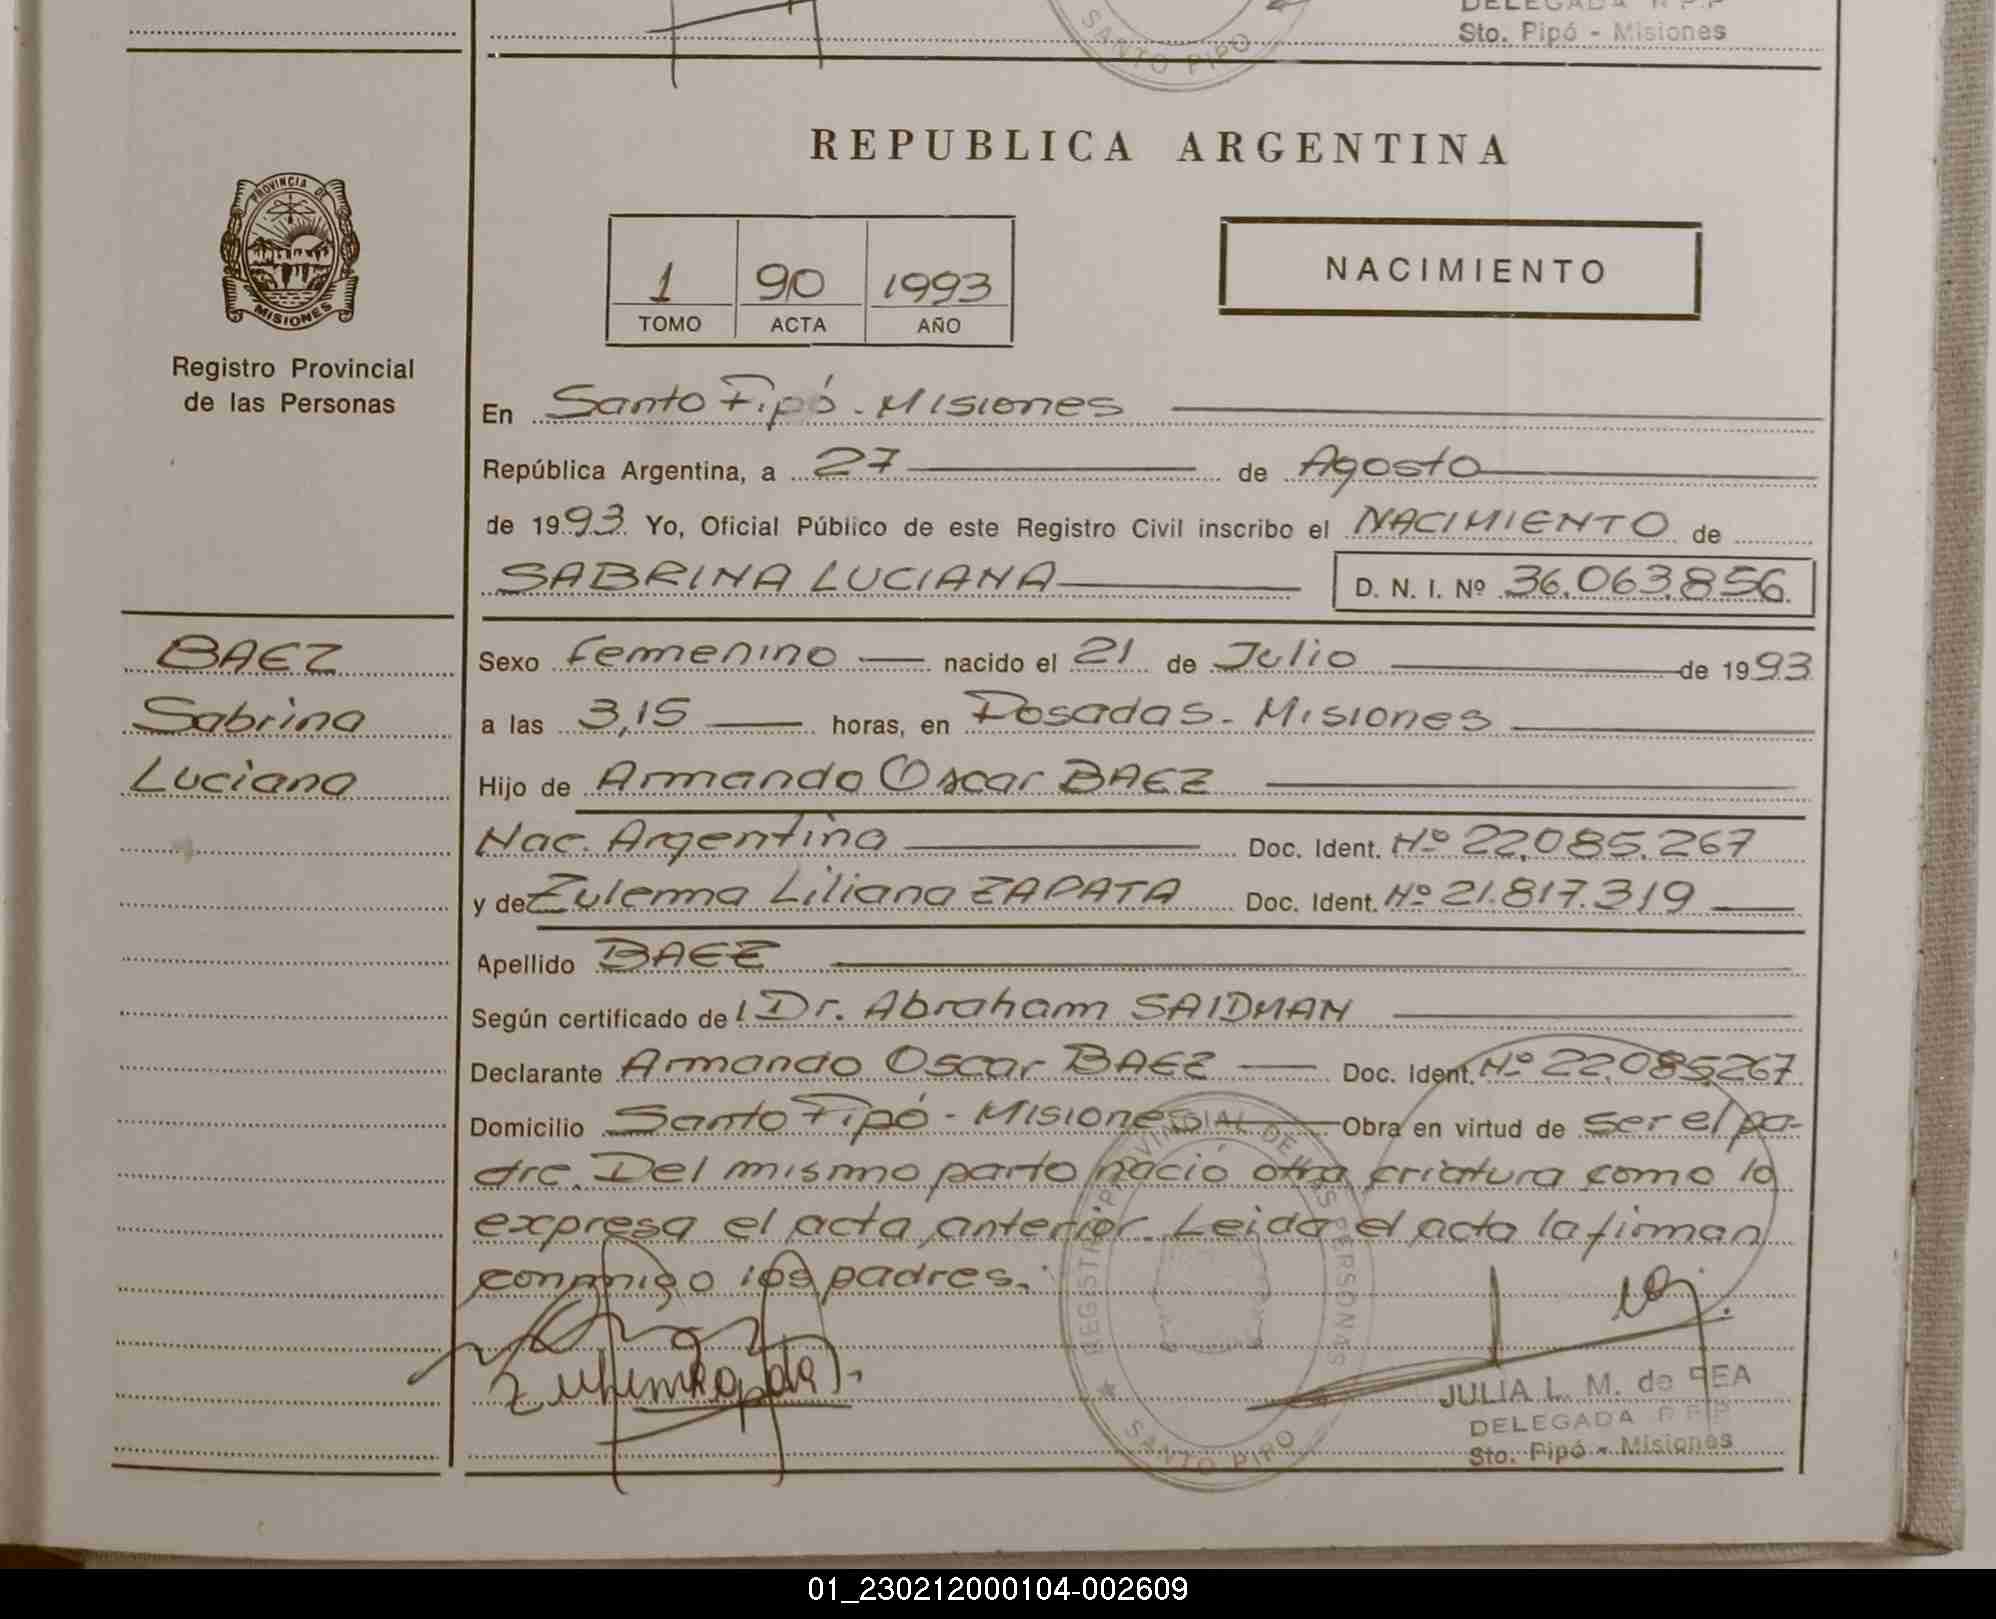 DELEGADA R.P.P
Sto. Pipó - Misiones
SANTO PIPO
REPUBLICA ARGENTINA
PROVINCIA DE
MISIONES
Registro Provincial
de las Personas
1 90 1993
TOMO ACTA AÑO
NACIMIENTO
En Santo Pipó - Misiones
República Argentina, a 27 de Agosto
de 1993 Yo, Oficial Público de este Registro Civil inscribo el NACIMIENTO de
SABRINA LUCIANA D. N. I. Nº 36.063.856
BAEZ
Sabrina
Luciana
Sexo femenino nacido el 21 de Julio de 1993
a las 3,15 horas, en Posadas - Misiones
Hijo de Armando Oscar BAEZ
Nac. Argentina Doc. Ident. Nº 22.085.267
y de Zulema Liliana ZAPATA Doc. Ident. Nº 21.817.319
Apellido BAEZ
Según certificado de l Dr. Abraham SAIDMAN
Declarante Armando Oscar BAEZ Doc. Ident. Nº 22.085.267
Domicilio Santo Pipó - Misiones Obra en virtud de ser el pa-
dre. Del mismo parto nació otra criatura como lo
expresa el acta anterior. Leida el acta la firman
conmigo los padres.
REGISTRO PROVINCIAL DE LAS PERSONAS
SANTO PIPO
JULIA L. M. de REA
DELEGADA R.P.P
Sto. Pipó - Misiones
01_230212000104-002609